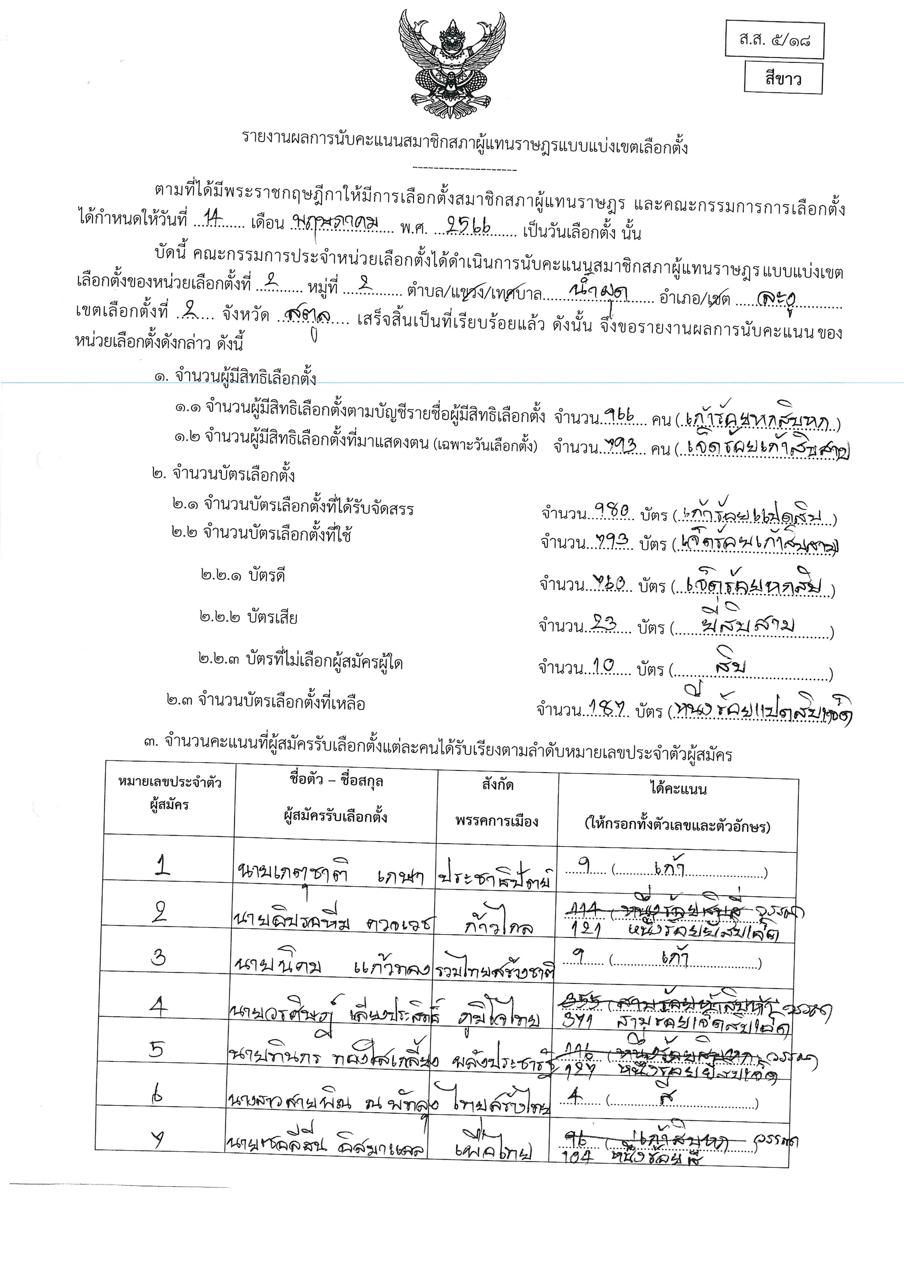 ส.ส. ๕/๑๘
สีขาว
รายงานผลการนับคะแนนสมาชิกสภาผู้แทนราษฎรแบบแบ่งเขตเลือกตั้ง
--------------------
ตามที่ได้มีพระราชกฤษฎีกาให้มีการเลือกตั้งสมาชิกสภาผู้แทนราษฎร และคณะกรรมการการเลือกตั้ง
ได้กำหนดให้วันที่ 14 เดือน พฤษภาคม พ.ศ. 2566 เป็นวันเลือกตั้ง นั้น
บัดนี้ คณะกรรมการประจำหน่วยเลือกตั้งได้ดำเนินการนับคะแนนสมาชิกสภาผู้แทนราษฎรแบบแบ่งเขต
เลือกตั้งของหน่วยเลือกตั้งที่ 2 หมู่ที่ 2 ตำบล/แขวง/เทศบาล น้ำผุด อำเภอ/เขต ละงู
เขตเลือกตั้งที่ 2 จังหวัด สตูล เสร็จสิ้นเป็นที่เรียบร้อยแล้ว ดังนั้น จึงขอรายงานผลการนับคะแนน ของ
หน่วยเลือกตั้งดังกล่าว ดังนี้
๑. จำนวนผู้มีสิทธิเลือกตั้ง
๑.๑ จำนวนผู้มีสิทธิเลือกตั้งตามบัญชีรายชื่อผู้มีสิทธิเลือกตั้ง จำนวน 966 คน (เก้าร้อยหกสิบหก)
๑.๒ จำนวนผู้มีสิทธิเลือกตั้งที่มาแสดงตน (เฉพาะวันเลือกตั้ง) จำนวน 793 คน (เจ็ดร้อยเก้าสิบสาม)
๒. จำนวนบัตรเลือกตั้ง
๒.๑ จำนวนบัตรเลือกตั้งที่ได้รับจัดสรร จำนวน 980 บัตร (เก้าร้อยแปดสิบ)
๒.๒ จำนวนบัตรเลือกตั้งที่ใช้ จำนวน 793 บัตร (เจ็ดร้อยเก้าสิบสาม)
๒.๒.๑ บัตรดี จำนวน 760 บัตร (เจ็ดร้อยหกสิบ)
๒.๒.๒ บัตรเสีย จำนวน 23 บัตร (ยี่สิบสาม)
๒.๒.๓ บัตรที่ไม่เลือกผู้สมัครผู้ใด จำนวน 10 บัตร (สิบ)
๒.๓ จำนวนบัตรเลือกตั้งที่เหลือ จำนวน 187 บัตร (หนึ่งร้อยแปดสิบเจ็ด)
๓. จำนวนคะแนนที่ผู้สมัครรับเลือกตั้งแต่ละคนได้รับเรียงตามลำดับหมายเลขประจำตัวผู้สมัคร
หมายเลขประจำตัว ชื่อตัว – ชื่อสกุล สังกัด ได้คะแนน
ผู้สมัคร ผู้สมัครรับเลือกตั้ง พรรคการเมือง (ให้กรอกทั้งตัวเลขและตัวอักษร)
1 นาย เกษา ประชาธิปัตย์ 9 (เก้า)
114 (หนึ่งร้อยสิบสี่
2 นาย ก้าวไกล 121 หนึ่งร้อยยี่สิบเอ็ด
3 นายนิคม แก้วทอง รวมไทยสร้างชาติ 9 (เก้า)
355 (สามร้อยห้าสิบห้า
4 นายวรศิษฎ์ เลียงประสิทธิ์ ภูมิใจไทย 371 สามร้อยเจ็ดสิบเอ็ด
116 (หนึ่งร้อยสิบหก
5 นาย พลังประชารัฐ 127 หนึ่งร้อยยี่สิบเจ็ด
6 นางสาวสายพิณ ณ พัทลุง ไทยสร้างไทย 4 (สี่)
96 เก้าสิบหก
7 นาย เพื่อไทย 104 หนึ่งร้อยสี่